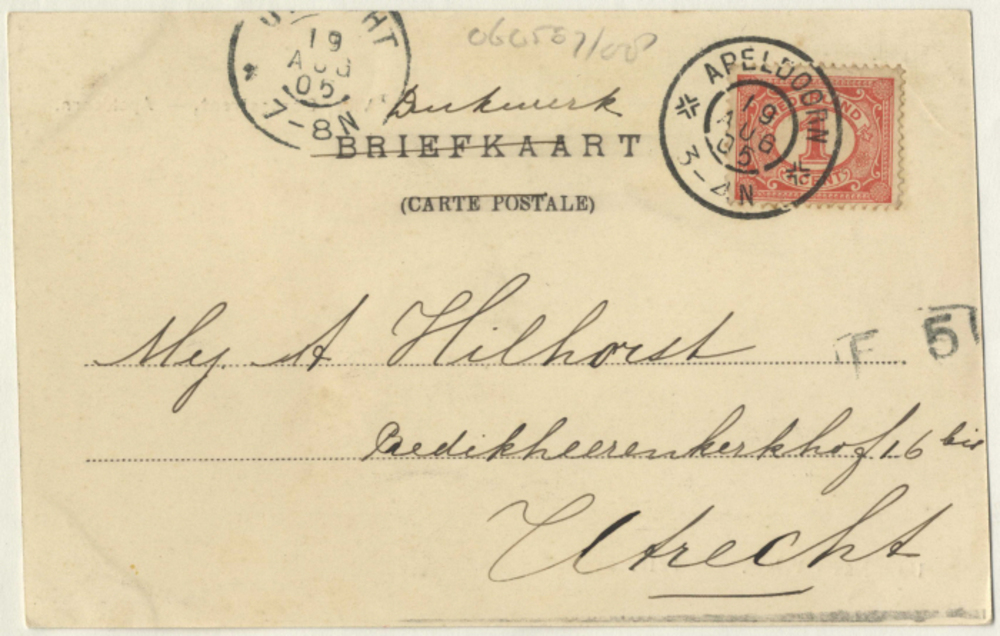 UTRECHT
19
AUG
05
7-8N
060567/08
Drukwerk
BRIEFKAART
(CARTE POSTALE)
APELDOORN
19
AUG
05
3-4N
NEDERLAND
1
CENT
Mej. A Hilhorst
F 5
Predikheerenkerkhof 16 bis
Utrecht